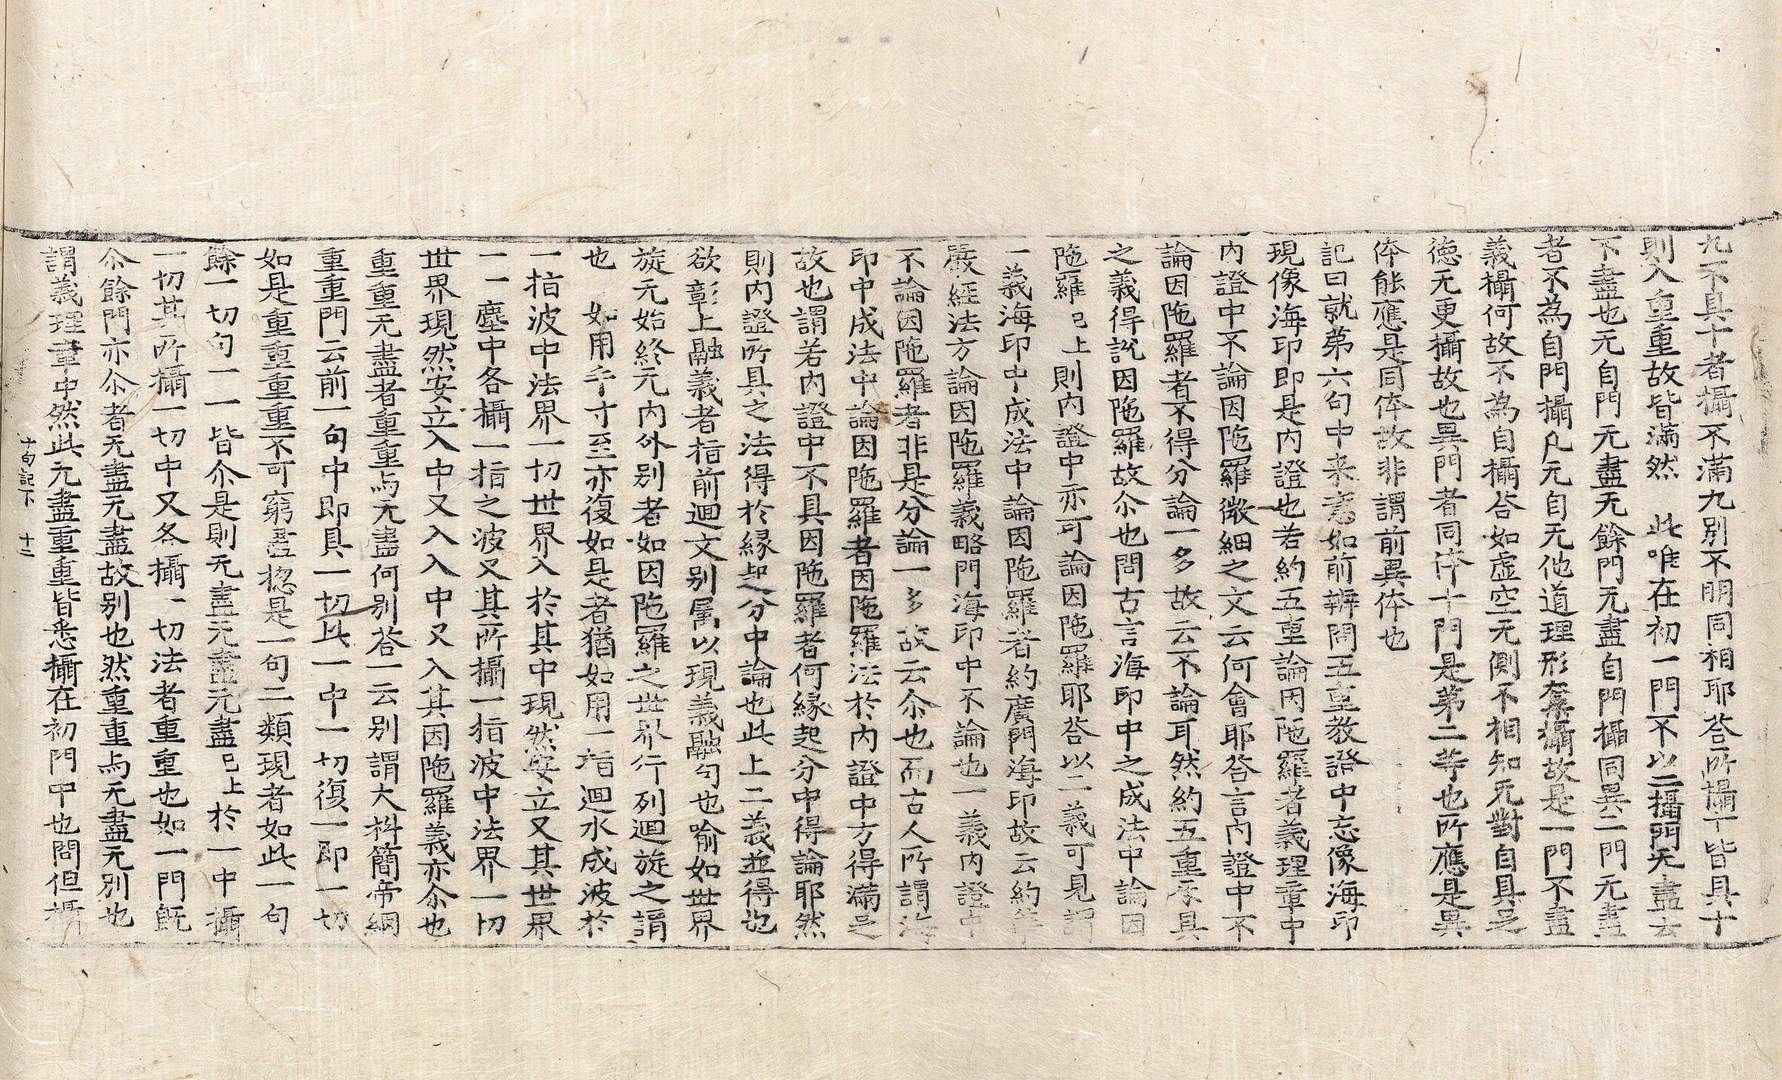 九不具十者攝不滿九別不明同相耶荅所攝一皆具十
則入重重故皆滿然　此唯在初一門不以二攝門无盡云
下盡也无自門无盡无餘門无盡自門攝同異二門无盡
者不爲自門攝凡元自无他道理形奪攝故是一門不盡
義攝何故不爲自攝荅如虛空元側不相知无對自具足
德无更攝故也異門者同体十門是第二等也所應是異
体能應是同体故非謂前異体也
記曰就第六句中来意如前辨問五重教證中忘像海印
現像海印即是內證也若約五重論因陁羅者義理章中
內證中不論因陁羅微細之文云何會耶荅言內證中不
論因陁羅者不得分論一多故云不論耳然約五重承具
之義得說因陁羅故尒也問古言海印中之成法中論因
陁羅已上則內證中亦可論因陁羅耶荅以二義可見謂
一義海印中成法中論因陁羅者約廣門海印故云約華
嚴經法方論因陁羅義略門海印中不論也一義內證中
不論因陁羅者非是分論一多故云尒也而古人所謂海
印中成法中論因陁羅者因陁羅法於內證中方得滿足
故也謂若內證中不具因陁羅者何緣起分中得論耶然
則內證所具之法得於緣起分中論也此上二義並得也
欲彰上融義者指前迴文別屬以現義融句也喻如世界
旋无始終无內外別者如因陁羅之世界行列迴旋之謂
也　如用手寸至亦復如是者猶如用一指迴水成波於
一指波中法界一切世界入於其中現然安立又其世界
一一塵中各攝一指之波又其所攝一指波中法界一切
世界現然安立入中又入入中又入其因陁羅義亦尒也
重重无盡者重重与无盡何別荅一云別謂大科簡帝綱
重重門云前一句中即具一切此一中一切復一即一切
如是重重重重不可窮盡揔是一句二類現者如此一句
餘一切句一一皆尒是則无盡无盡无盡已上於一中攝
一切其所攝一切中又各攝一切法者重重也如一門旣
尒餘門亦尒者无盡无盡故別也然重重与无盡无別也
謂義理章中然此无盡重重皆悉攝在初門中也問但攝
十句記下　十二